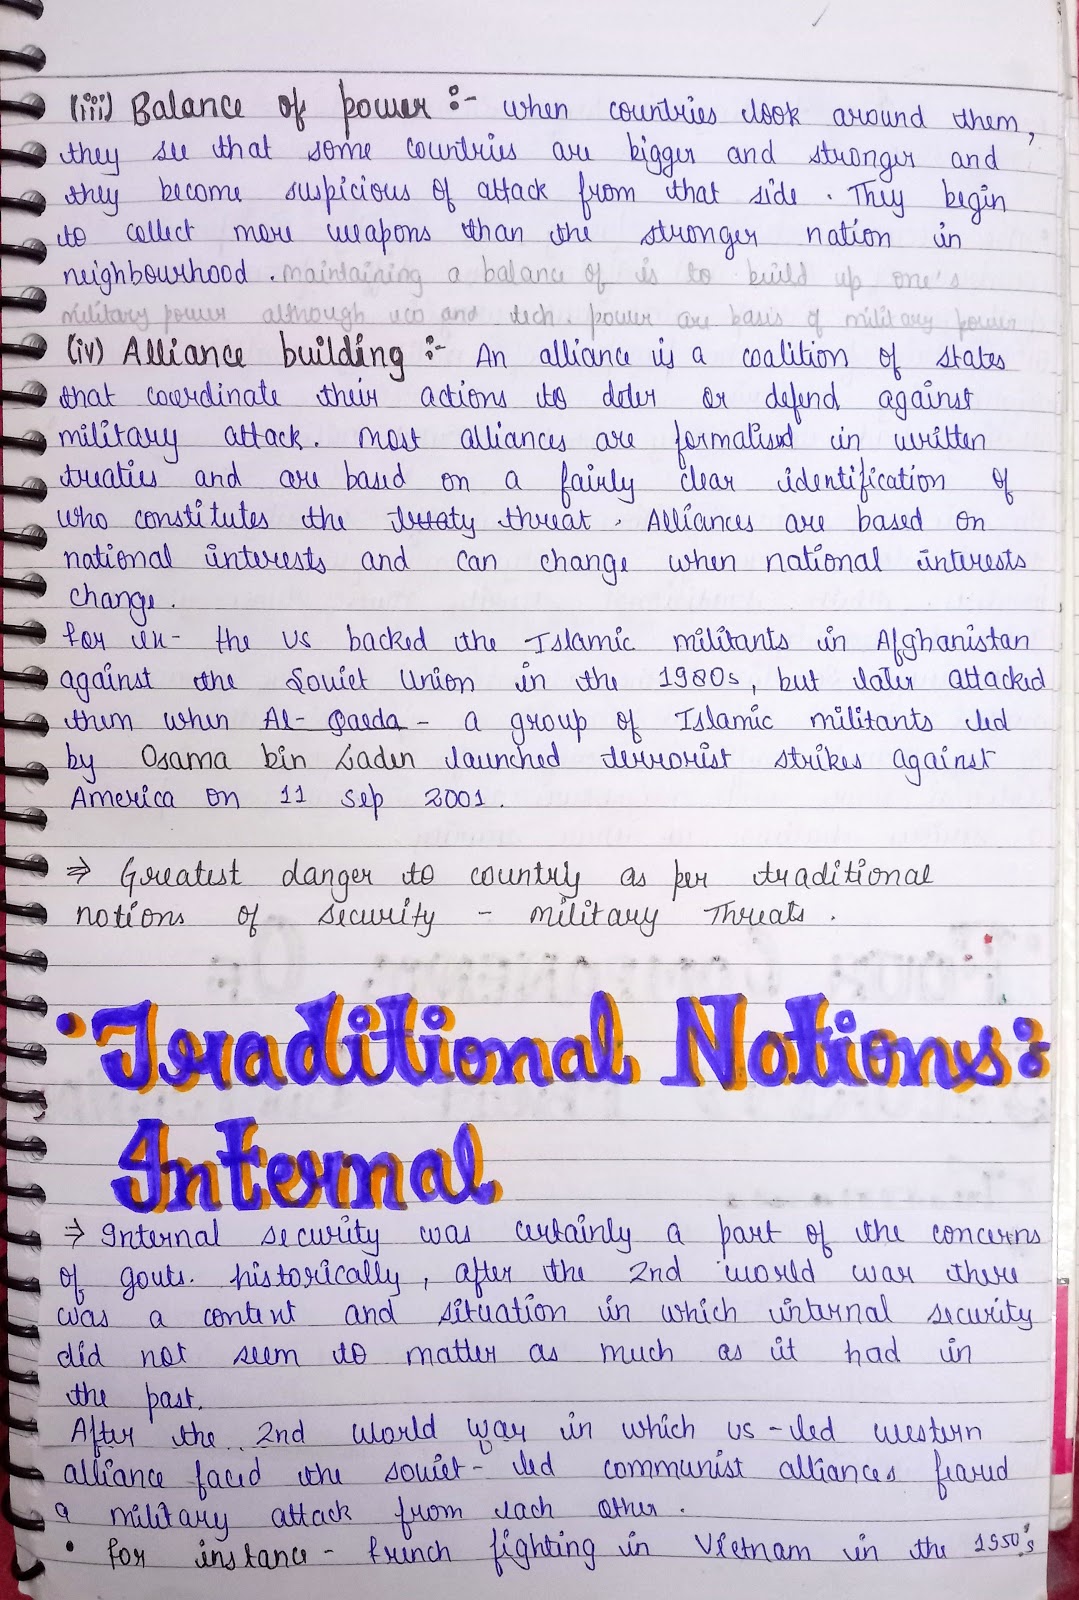 (iii) Balance of power :- when countries look around them,
they see that some countries are bigger and stronger and
they become suspicious of attack from that side. They begin
to collect more weapons than the stronger nation in
neighbourhood. maintaining a balance of is to build up one's
military power although eco and tech. power are basis of military power
(iv) Alliance building :- An alliance is a coalition of states
that coordinate their actions to deter or defend against
military attack. most alliances are formalised in written
treaties and are based on a fairly clear identification of
who constitutes the treaty threat. Alliances are based on
national interests and can change when national interests
change.
for ex- the US backed the Islamic militants in Afghanistan
against the Soviet Union in the 1980s, but later attacked
them when Al-Qaeda - a group of Islamic militants led
by Osama bin Laden launched terrorist strikes against
America on 11 Sep 2001.
⇒ Greatest danger to country as per traditional
notions of security - military Threats.
• Traditional Notions:
Internal
⇒ Internal security was certainly a part of the concerns
of govts. historically, after the 2nd world war there
was a content and situation in which internal security
did not seem to matter as much as it had in
the past.
After the 2nd World War in which US-led western
alliance faced the soviet-led communist alliances feared
a military attack from each other.
• for instance - french fighting in Vietnam in the 1950's